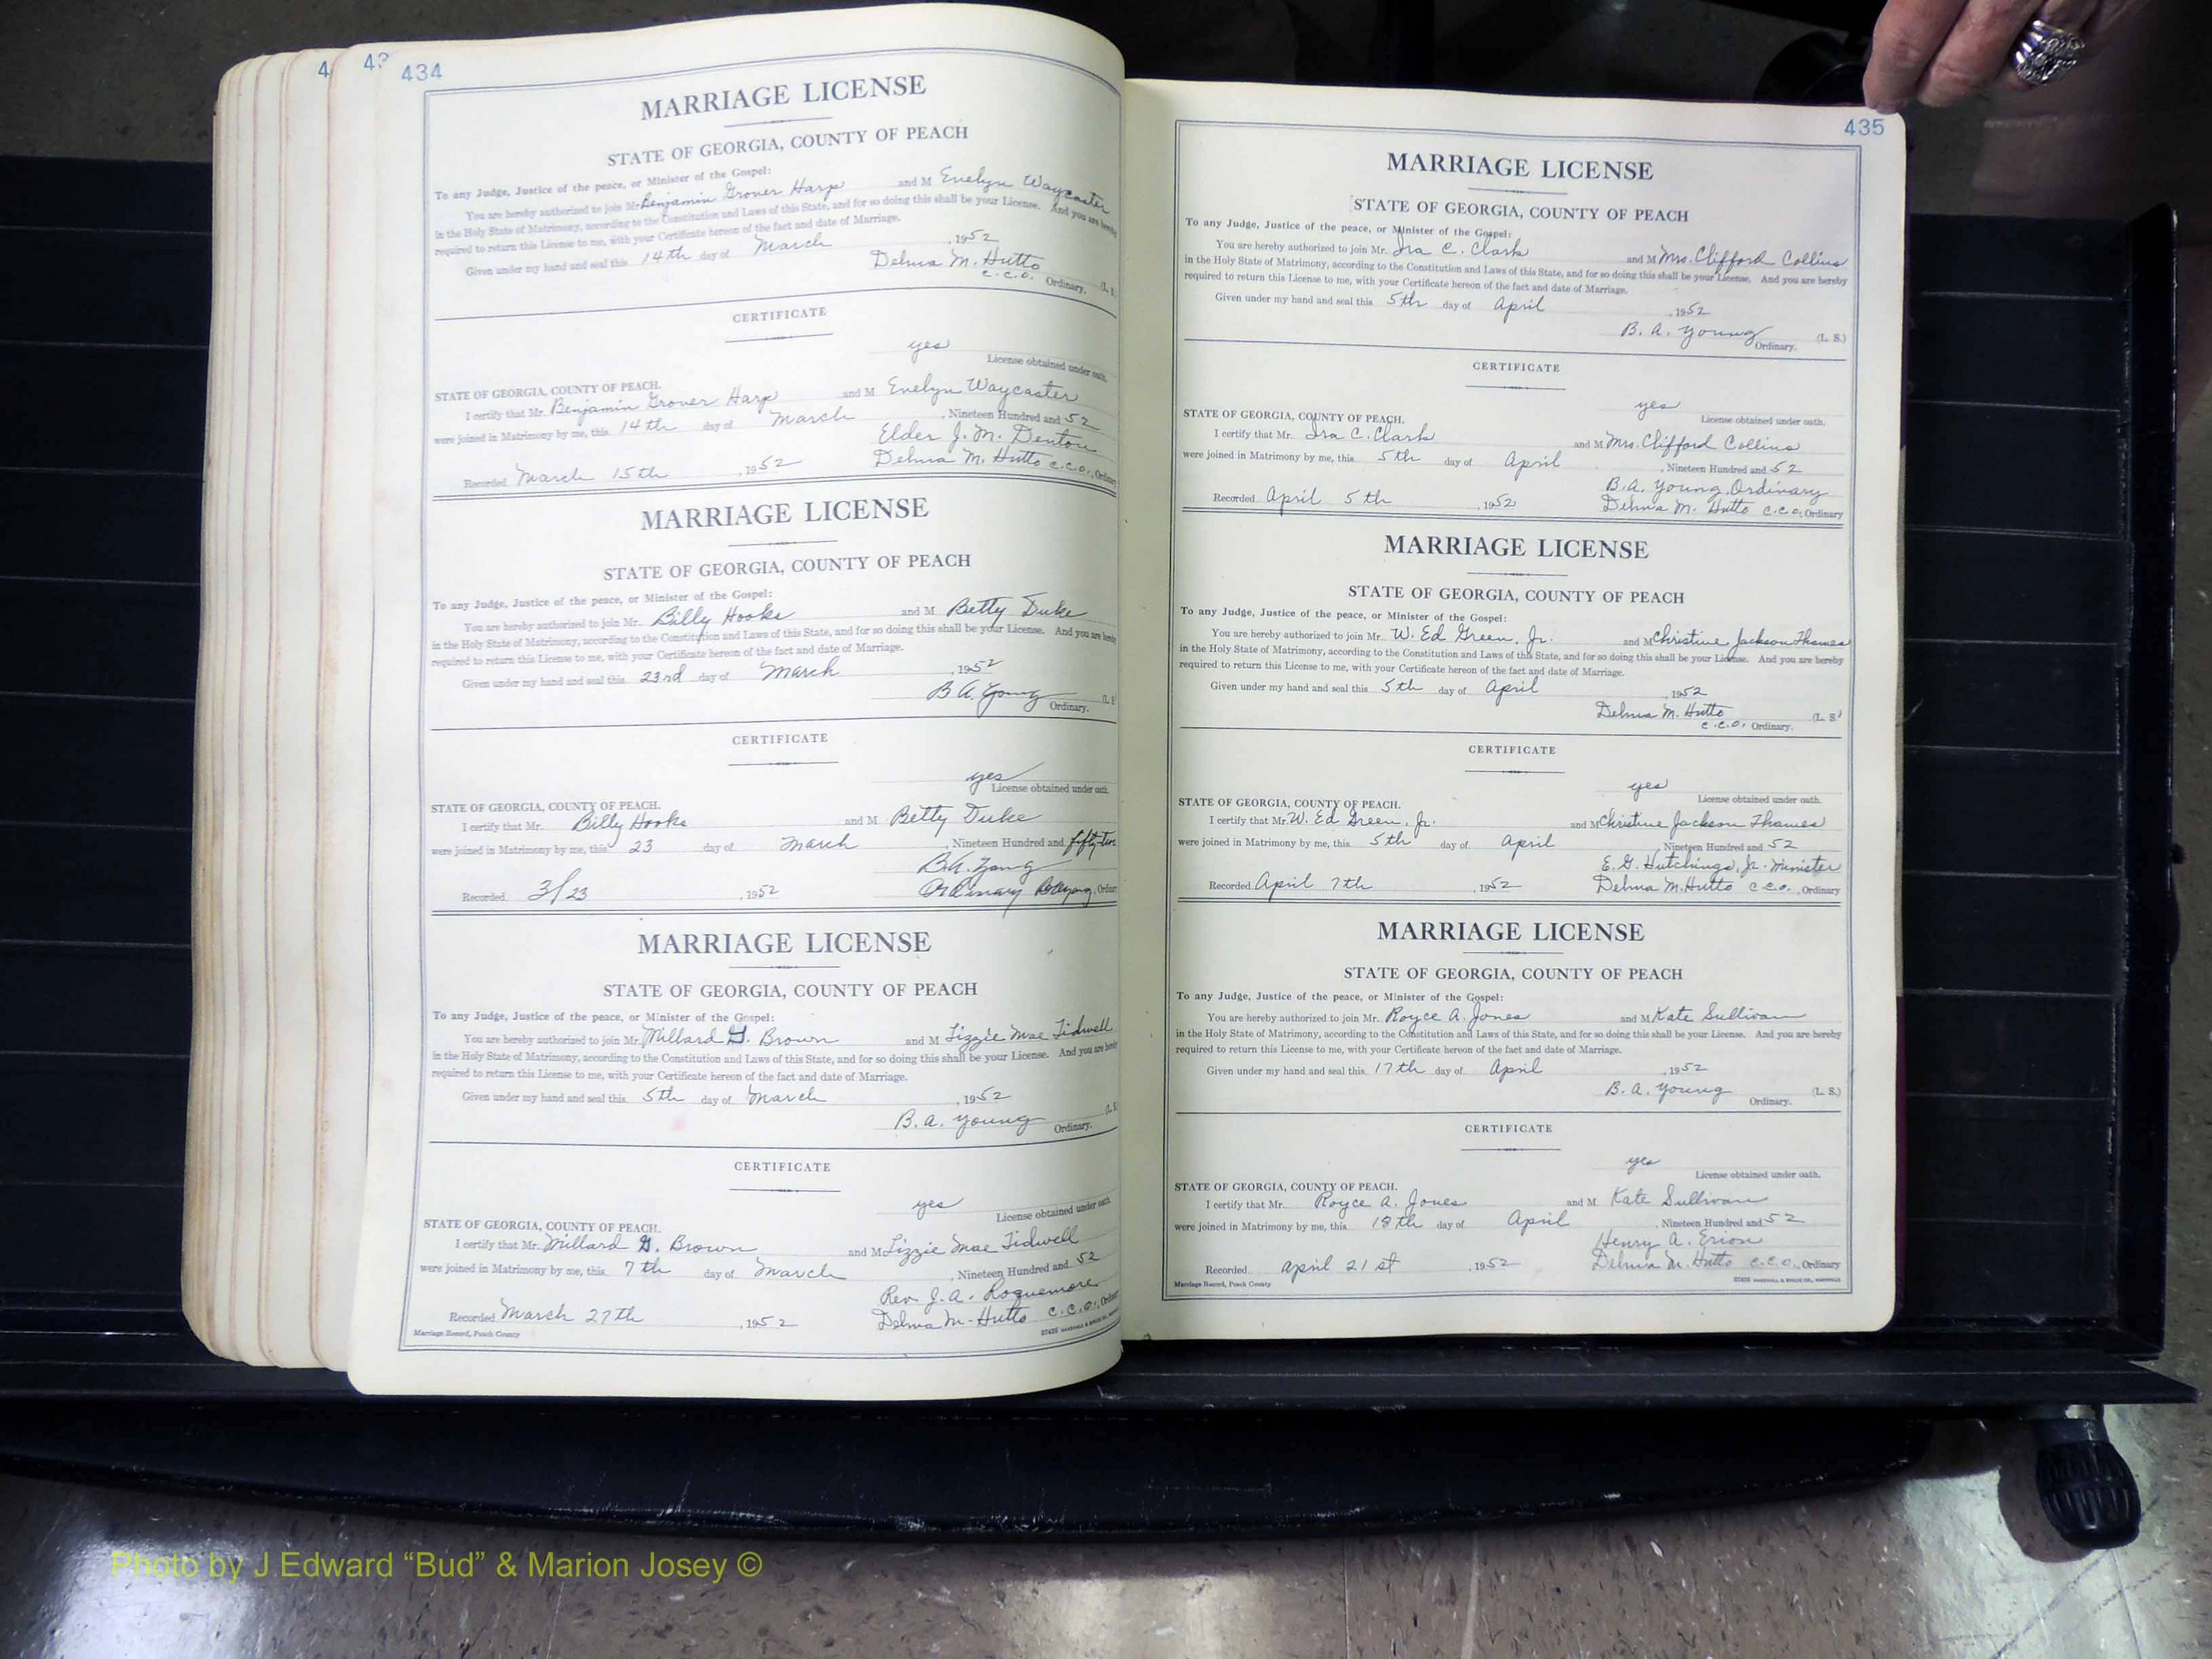 4
43
434
MARRIAGE LICENSE
STATE OF GEORGIA, COUNTY OF PEACH
To any Judge, Justice of the peace, or Minister of the Gospel:
You are hereby authorized to join Mr. Benjamin Grover Harp and M Evelyn Waycaster
in the Holy State of Matrimony, according to the Constitution and Laws of this State, and for so doing this shall be your License. And you are hereby
required to return this License to me, with your Certificate hereon of the fact and date of Marriage.
Given under my hand and seal this 14th day of March, 1952
Delma M. Hutto
c.c.o. Ordinary. (L. S.)
CERTIFICATE
yes
License obtained under oath.
STATE OF GEORGIA, COUNTY OF PEACH.
I certify that Mr. Benjamin Grover Harp and M Evelyn Waycaster
were joined in Matrimony by me, this 14th day of March, Nineteen Hundred and 52
Elder J. M. Denton
Recorded March 15th, 1952 Delma M. Hutto c.c.o., Ordinary
MARRIAGE LICENSE
STATE OF GEORGIA, COUNTY OF PEACH
To any Judge, Justice of the peace, or Minister of the Gospel:
You are hereby authorized to join Mr. Billy Hooks and M Betty Duke
in the Holy State of Matrimony, according to the Constitution and Laws of this State, and for so doing this shall be your License. And you are hereby
required to return this License to me, with your Certificate hereon of the fact and date of Marriage.
Given under my hand and seal this 23rd day of March, 1952
B. A. Young (L. S.)
Ordinary.
CERTIFICATE
yes
License obtained under oath.
STATE OF GEORGIA, COUNTY OF PEACH.
I certify that Mr. Billy Hooks and M Betty Duke
were joined in Matrimony by me, this 23 day of March, Nineteen Hundred and fifty-two
B. A. Young
Recorded 3/23, 1952 Ordinary B.A. Young, Ordinary
MARRIAGE LICENSE
STATE OF GEORGIA, COUNTY OF PEACH
To any Judge, Justice of the peace, or Minister of the Gospel:
You are hereby authorized to join Mr. Millard G. Brown and M Lizzie Mae Tidwell
in the Holy State of Matrimony, according to the Constitution and Laws of this State, and for so doing this shall be your License. And you are hereby
required to return this License to me, with your Certificate hereon of the fact and date of Marriage.
Given under my hand and seal this 5th day of March, 1952
B. A. Young (L. S.)
Ordinary.
CERTIFICATE
yes
License obtained under oath.
STATE OF GEORGIA, COUNTY OF PEACH.
I certify that Mr. Millard G. Brown and M Lizzie Mae Tidwell
were joined in Matrimony by me, this 7th day of March, Nineteen Hundred and 52
Rev. J. A. Roquemore
Recorded March 27th, 1952 Delma M. Hutto c.c.o., Ordinary
Marriage Record, Peach County
435
MARRIAGE LICENSE
STATE OF GEORGIA, COUNTY OF PEACH
To any Judge, Justice of the peace, or Minister of the Gospel:
You are hereby authorized to join Mr. Ira C. Clark and M Mrs. Clifford Collins
in the Holy State of Matrimony, according to the Constitution and Laws of this State, and for so doing this shall be your License. And you are hereby
required to return this License to me, with your Certificate hereon of the fact and date of Marriage.
Given under my hand and seal this 5th day of April, 1952
B. A. Young (L. S.)
Ordinary.
CERTIFICATE
yes
License obtained under oath.
STATE OF GEORGIA, COUNTY OF PEACH.
I certify that Mr. Ira C. Clark and M Mrs. Clifford Collins
were joined in Matrimony by me, this 5th day of April, Nineteen Hundred and 52
B. A. Young, Ordinary
Recorded April 5th, 1952 Delma M. Hutto c.c.o., Ordinary
MARRIAGE LICENSE
STATE OF GEORGIA, COUNTY OF PEACH
To any Judge, Justice of the peace, or Minister of the Gospel:
You are hereby authorized to join Mr. W. Ed Green, Jr. and M Christine Jackson Thames
in the Holy State of Matrimony, according to the Constitution and Laws of this State, and for so doing this shall be your License. And you are hereby
required to return this License to me, with your Certificate hereon of the fact and date of Marriage.
Given under my hand and seal this 5th day of April, 1952
Delma M. Hutto (L. S.)
c.c.o. Ordinary.
CERTIFICATE
yes
License obtained under oath.
STATE OF GEORGIA, COUNTY OF PEACH.
I certify that Mr. W. Ed Green, Jr. and M Christine Jackson Thames
were joined in Matrimony by me, this 5th day of April, Nineteen Hundred and 52
E. G. Hutchings, Jr. Minister
Recorded April 7th, 1952 Delma M. Hutto c.c.o., Ordinary
MARRIAGE LICENSE
STATE OF GEORGIA, COUNTY OF PEACH
To any Judge, Justice of the peace, or Minister of the Gospel:
You are hereby authorized to join Mr. Royce A. Jones and M Kate Sullivan
in the Holy State of Matrimony, according to the Constitution and Laws of this State, and for so doing this shall be your License. And you are hereby
required to return this License to me, with your Certificate hereon of the fact and date of Marriage.
Given under my hand and seal this 17th day of April, 1952
B. A. Young (L. S.)
Ordinary.
CERTIFICATE
yes
License obtained under oath.
STATE OF GEORGIA, COUNTY OF PEACH.
I certify that Mr. Royce A. Jones and M Kate Sullivan
were joined in Matrimony by me, this 18th day of April, Nineteen Hundred and 52
Henry A. Erion
Recorded April 21st, 1952 Delma M. Hutto c.c.o., Ordinary
Marriage Record, Peach County
Photo by J Edward “Bud” & Marion Josey ©